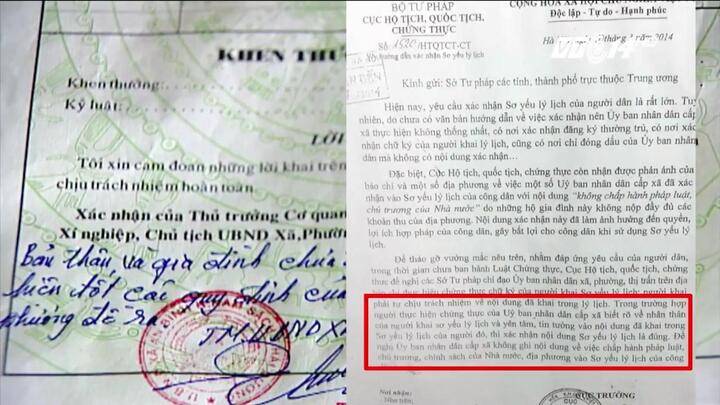 KHEN THƯ
Khen thưởng:
Kỷ luật:
LỜI
Tôi xin cam đoan những lời khai trên
chịu trách nhiệm hoàn toàn.
Xác nhận của Thủ trưởng Cơ quan
Xí nghiệp, Chủ tịch UBND Xã, Phườn
Bản thân và gia đình chưa
hiện tốt các quy định của
phương đề ra
TM.UBND XÃ
BỘ TƯ PHÁP
CỤC HỘ TỊCH, QUỐC TỊCH,
CHỨNG THỰC
CỘNG HÒA XÃ HỘI CHỦ NGHĨA
Độc lập - Tự do - Hạnh phúc
Số: 1520/HTQTCT-CT
hướng dẫn xác nhận Sơ yếu lý lịch
2014
VTC14
Kính gửi: Sở Tư pháp các tỉnh, thành phố trực thuộc Trung ương
Hiện nay, yêu cầu xác nhận Sơ yếu lý lịch của người dân là rất lớn. Tuy
nhiên, do chưa có văn bản hướng dẫn về việc xác nhận nên Ủy ban nhân dân cấp
xã thực hiện không thống nhất, có nơi xác nhận đăng ký thường trú, có nơi xác
nhận chữ ký của người khai lý lịch, cũng có nơi chỉ đóng dấu của Ủy ban nhân
dân mà không có nội dung xác nhận...
Đặc biệt, Cục Hộ tịch, quốc tịch, chứng thực còn nhận được phản ánh của
báo chí và một số địa phương về việc một số Uỷ ban nhân dân cấp xã đã xác
nhận vào Sơ yếu lý lịch của công dân với nội dung "không chấp hành pháp luật,
chủ trương của Nhà nước" do những hộ gia đình này không nộp đầy đủ các
khoản thu của địa phương. Nội dung xác nhận này đã làm ảnh hưởng đến quyền,
lợi ích hợp pháp của công dân, gây bất lợi cho công dân khi sử dụng Sơ yếu lý
lịch.
Để tháo gỡ vướng mắc nêu trên, nhằm đáp ứng yêu cầu của người dân,
trong thời gian chưa ban hành Luật Chứng thực, Cục Hộ tịch, quốc tịch, chứng
thực đề nghị các Sở Tư pháp chỉ đạo Ủy ban nhân dân xã, phường, thị trấn trên địa
phải tự chịu trách nhiệm về nội dung đã khai trong lý lịch. Trong trường hợp
người thực hiện chứng thực của Uỷ ban nhân dân cấp xã biết rõ về nhân thân
của người khai sơ yếu lý lịch và yên tâm, tin tưởng vào nội dung đã khai trong
Sơ yếu lý lịch của người đó, thì xác nhận nội dung Sơ yếu lý lịch là đúng. Đề
nghị Ủy ban nhân dân cấp xã không ghi nội dung về việc chấp hành pháp luật,
chủ trương, chính sách của Nhà nước, địa phương vào Sơ yếu lý lịch của công
Nơi nhận:
- Như trên;
CỤC TRƯỞNG